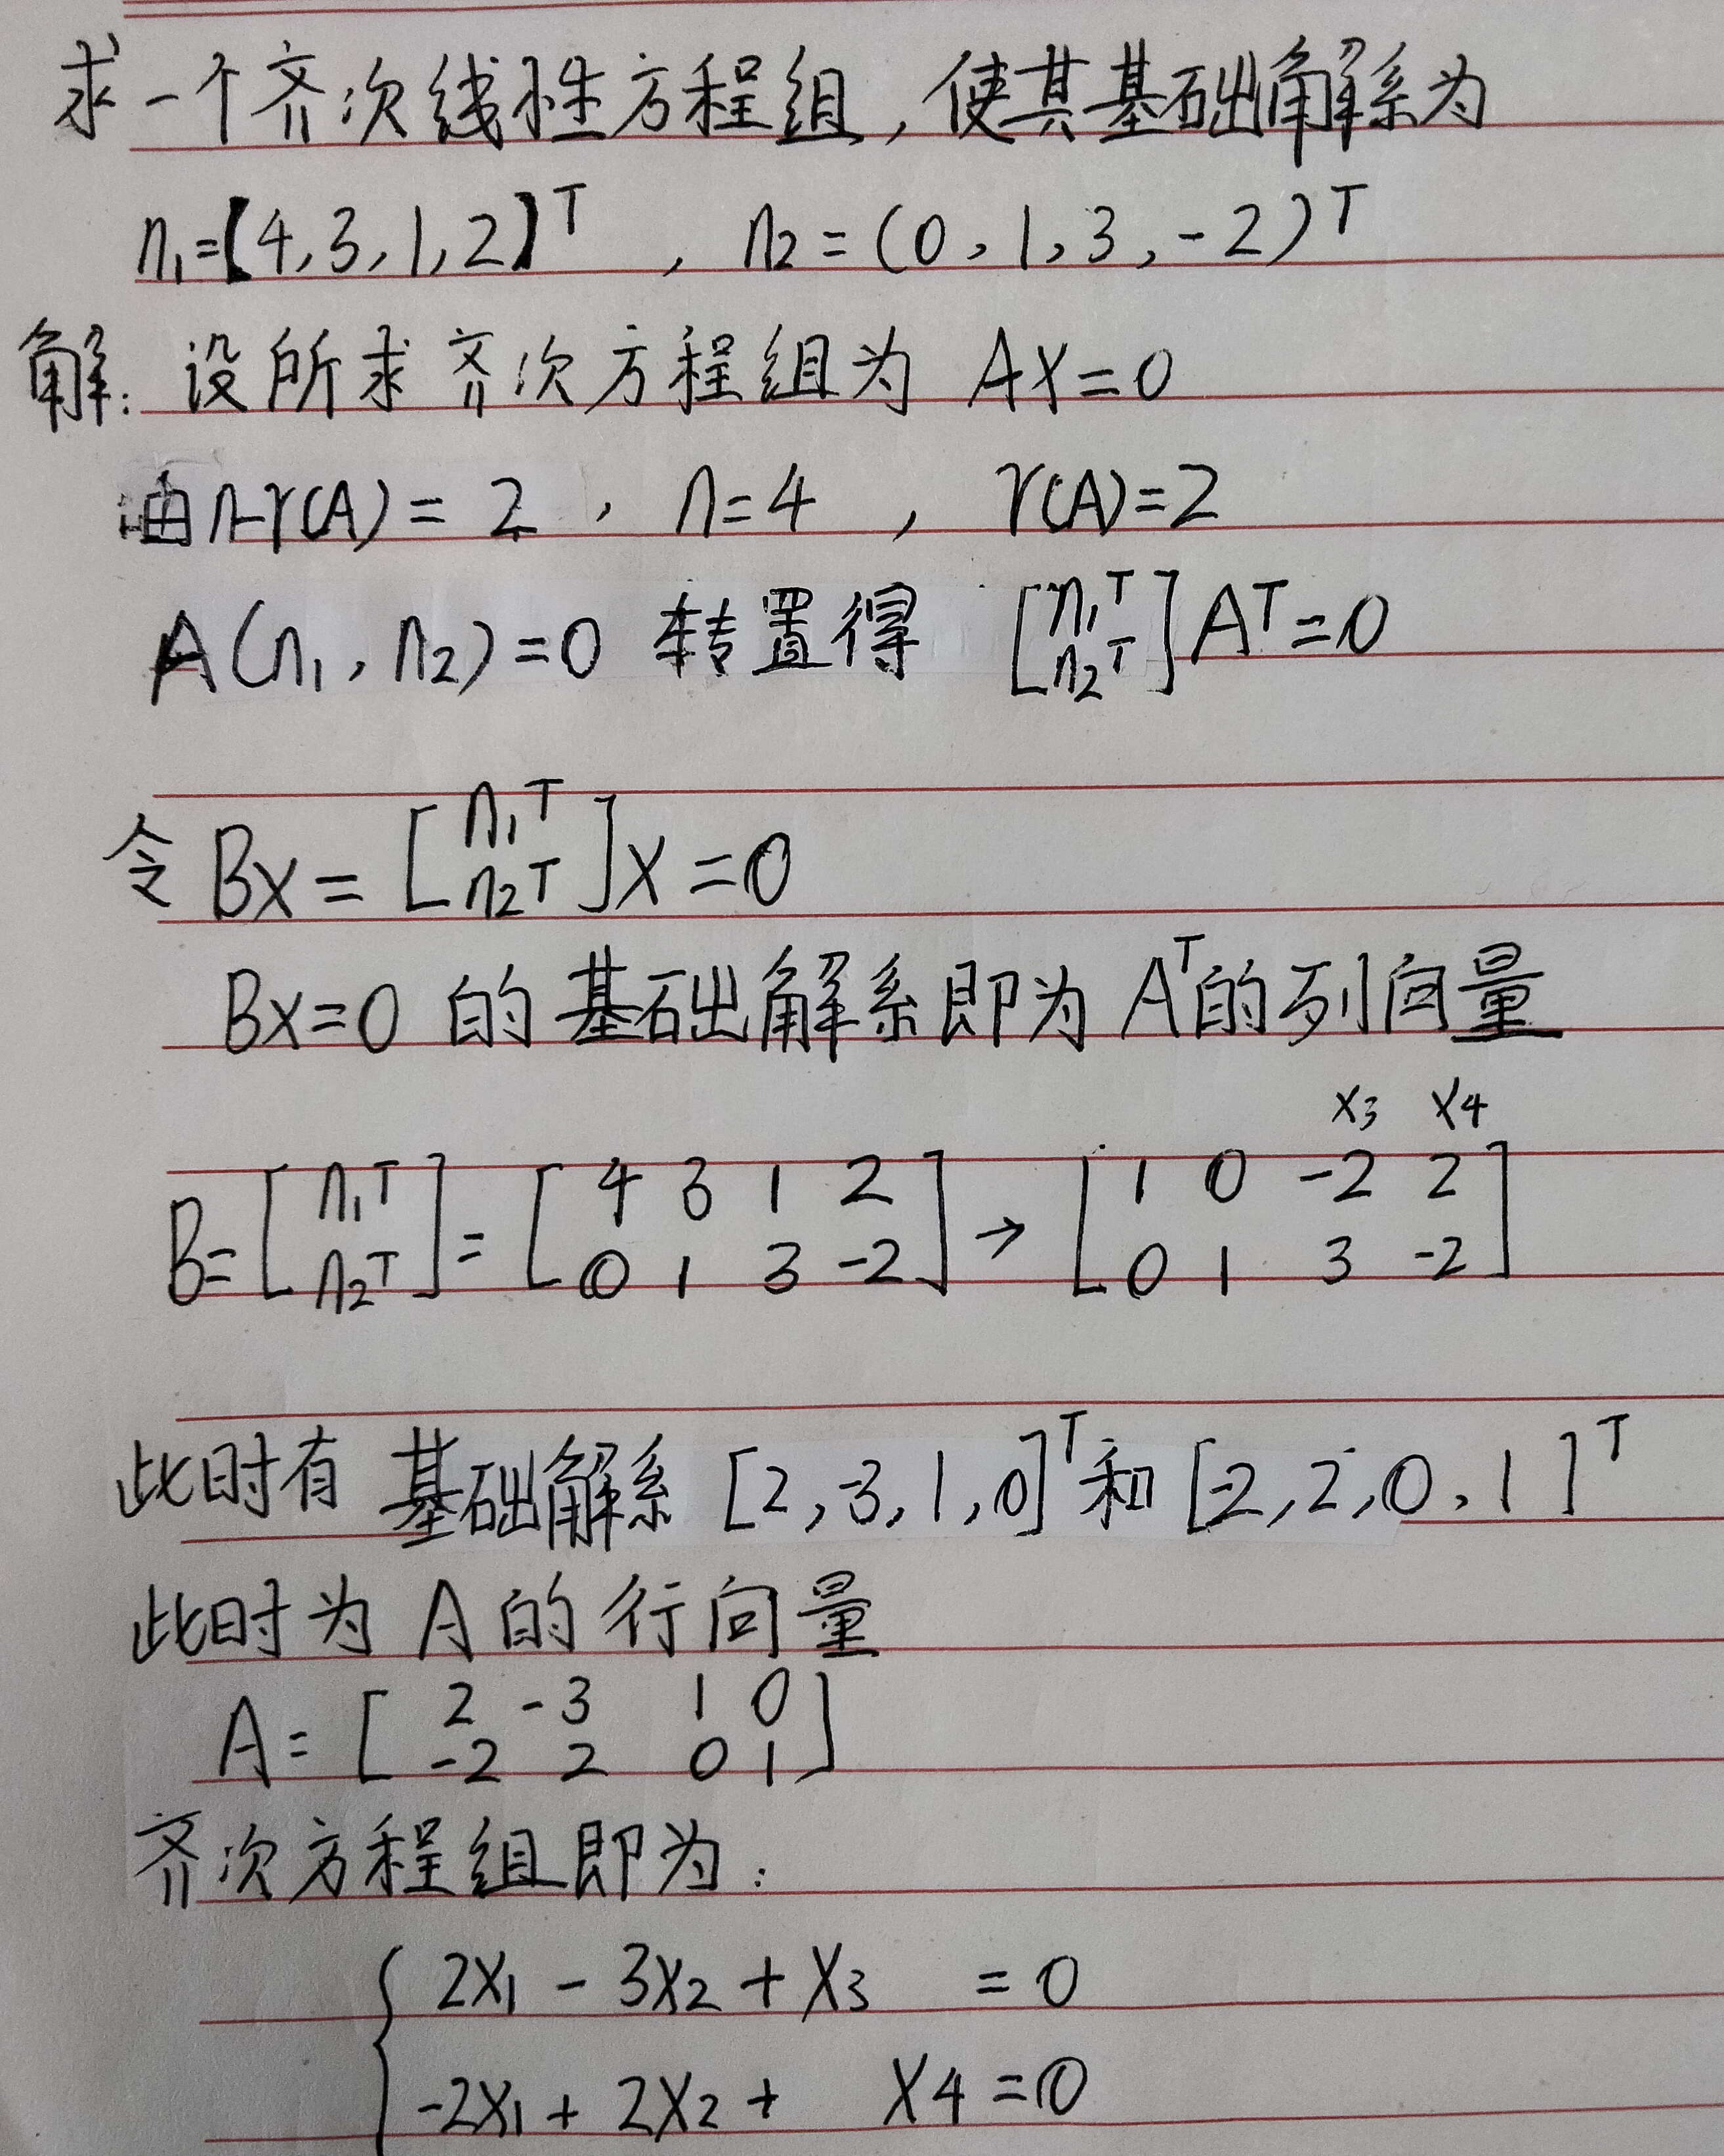 求一个齐次线性方程组,使其基础解系为
n₁=[4,3,1,2]ᵀ , n₂=(0,1,3,-2)ᵀ
解:设所求齐次方程组为 AX=0
由n-r(A)=2,n=4,r(A)=2
A(n₁,n₂)=0 转置得 [n₁ᵀ n₂ᵀ]Aᵀ=0
令 Bx=[n₁ᵀ n₂ᵀ]x=0
Bx=0 的基础解系即为 Aᵀ的列向量
x₃ x₄
B=[n₁ᵀ n₂ᵀ]=[4 3 1 2 0 1 3 -2]→[1 0 -2 2 0 1 3 -2]
此时有 基础解系 [2,-3,1,0]ᵀ和[-2,2,0,1]ᵀ
此时为 A 的行向量
A=[2 -3 1 0 -2 2 0 1]
齐次方程组即为:
2x₁-3x₂+x₃ =0
-2x₁+2x₂+ x₄=0